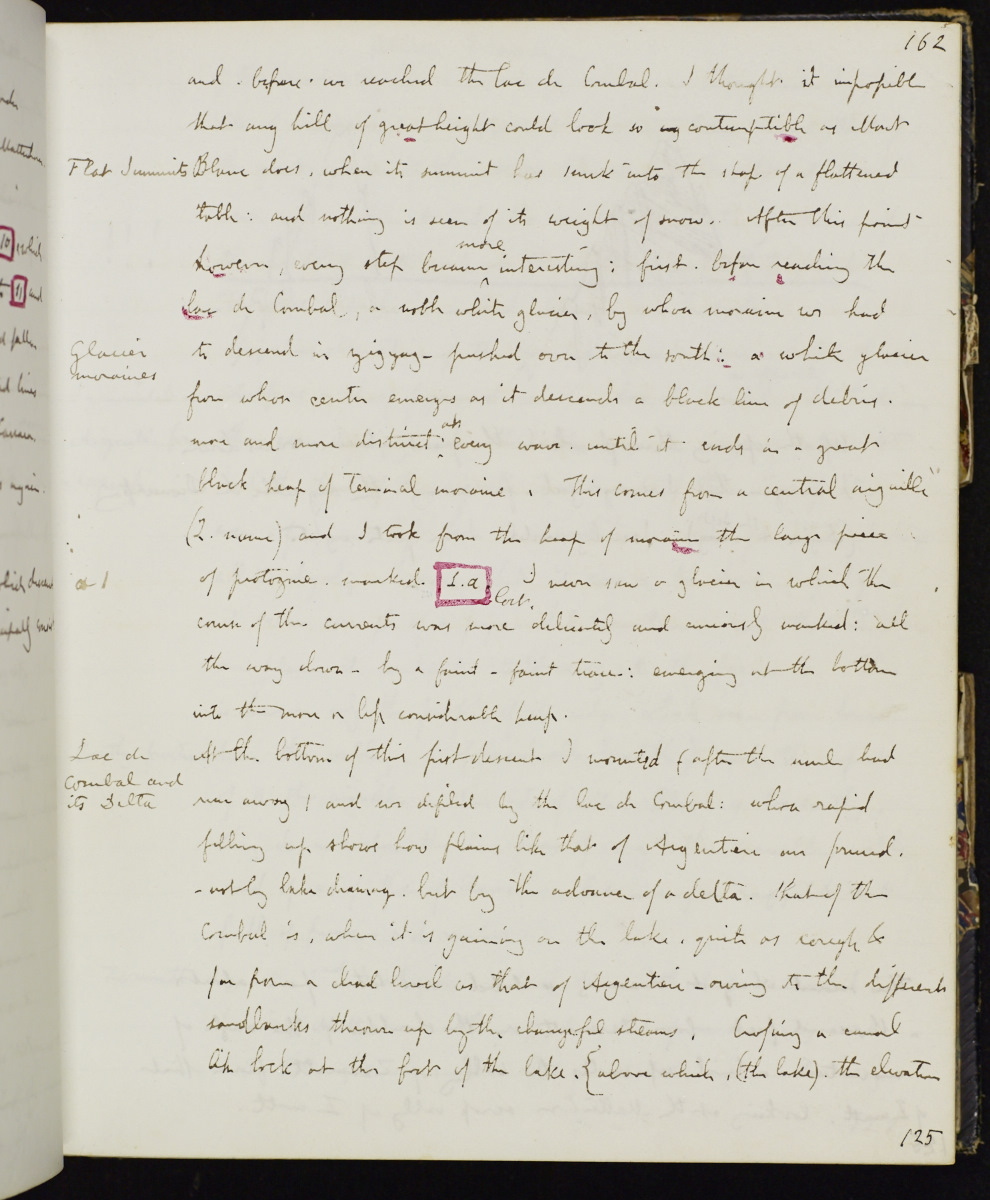 162
and . before . we reached the lac de Combal. I thought it impossible
that any hill of great height could look so contemptible as Mont
Flat Summits
Blanc does, when its summit has sunk into the shape of a flattened
table: and nothing is seen of its weight of snow. After this point
however, every step became more interesting: first. before reaching the
lac de Combal, a noble white glacier, by whose moraine we had
Glacier moraines
to descend in zigzag - pushed over to the south: a white glacier
from whose center emerges as it descends a black line of debris.
more and more distinct at every wave. until it ends in a great
black heap of terminal moraine. This comes from a central aiguille
(Q. name) and I took from the heap of moraine the large piece
a 1
of protogine. marked. 1.a Lost. I never saw a glacier in which the
course of the currents was more delicately and curiously marked: all
the way down - by a faint - faint trace: emerging at the bottom
into the more or less considerable heap.
Lac de Combal and its Delta
At the bottom of this first descent I mounted (after the mule had
run away) and we defiled by the lac de Combal: whose rapid
filling up shows how plains like that of Argentiere are formed.
- not by lake drainage. but by the advance of a delta. that of the
Combal is, when it is gaining on the lake, quite as rough &
far from a dead level as that of Argentiere - owing to the different
sandbanks thrown up by the changeful streams. Crossing a canal
like lock at the foot of the lake, {above which, (the lake). the elevation
125